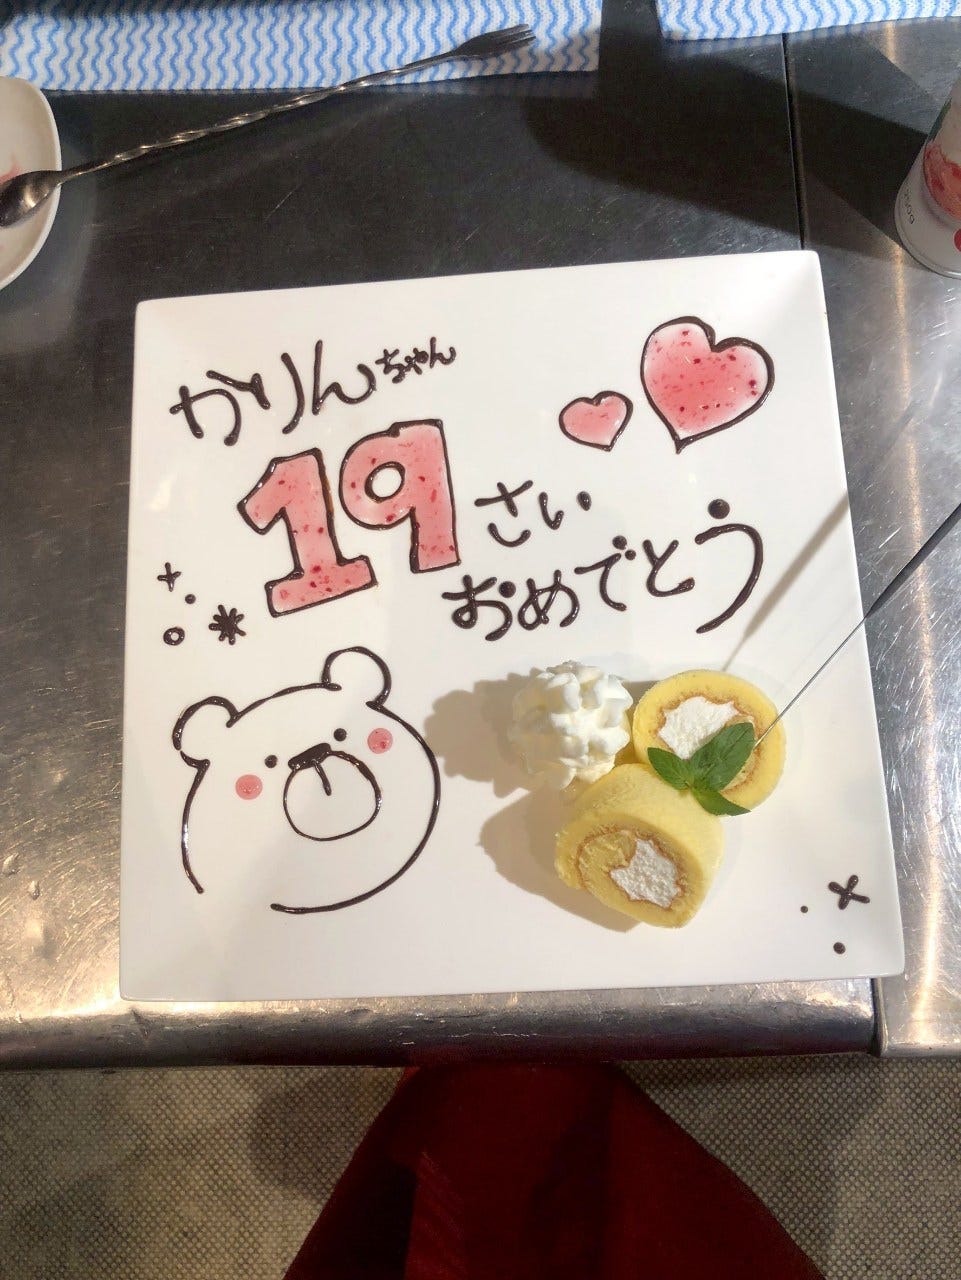 かりんちゃん
19さい
おめでとう